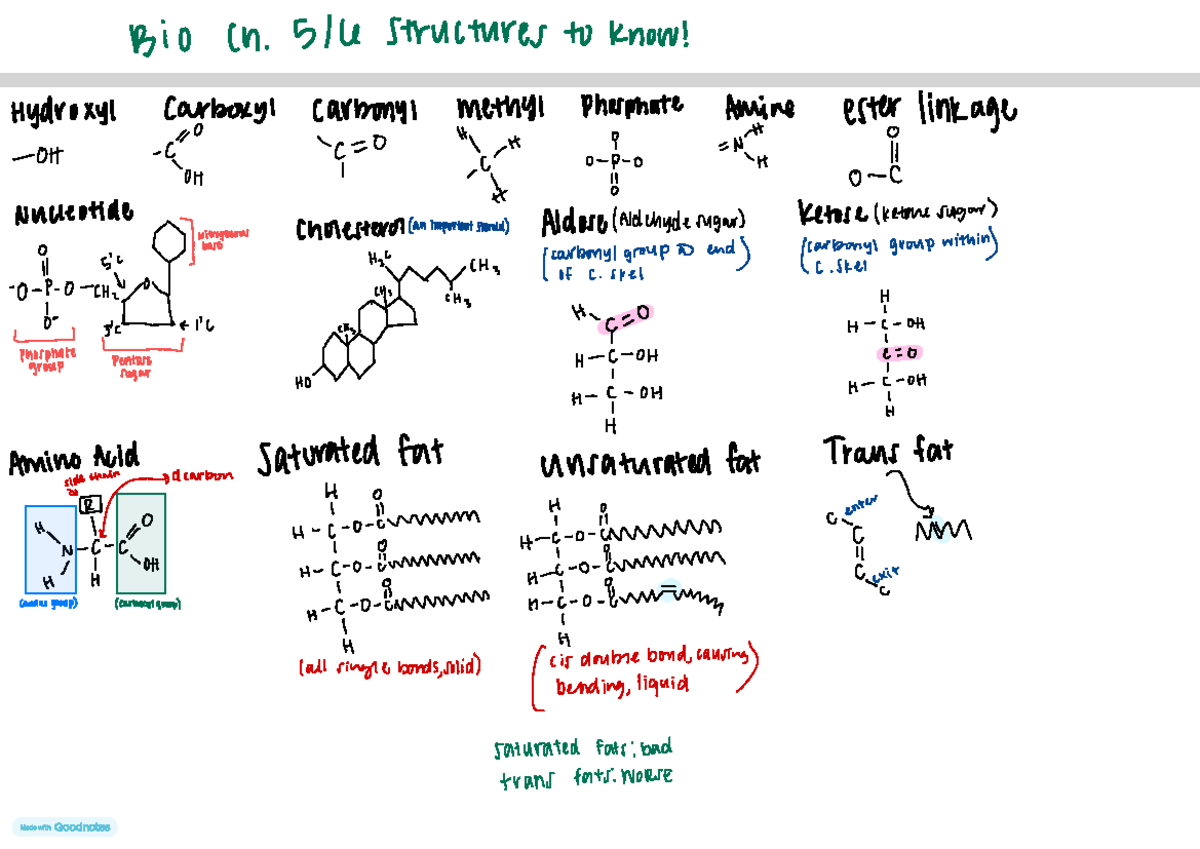 Bio Ch. 5/6 Structures to know!
Hydroxyl Carboxyl Carbonyl Methyl Phosphate Amine ester linkage
-OH
-C=O
OH
C=O
H
H
-C
H
O
O-P-O
O
=N-H
H
O
O-C
Nucleotide
Nitrogenous base
O
-O-P-O-CH2
O-
5'C
O
3'C
1'C
Phosphate group
Pentose sugar
Cholesterol (An important steroid)
H3C
CH3
CH3
CH3
CH3
HO
Aldose (Aldehyde sugar)
(carbonyl group @ end
of C. skel)
H
C=O
H-C-OH
H-C-OH
H
Ketose (ketone sugar)
(carbonyl group within
C. skel)
H
H-C-OH
C=O
H-C-OH
H
Amino Acid
side chain
α carbon
R
H
N-C-C
O
OH
H
H
(amine group)
(carboxyl group)
Saturated fat
H
O
H-C-O-C
O
H-C-O-C
O
H-C-O-C
H
(all single bonds, solid)
unsaturated fat
H
O
H-C-O-C
O
H-C-O-C
O
H-C-O-C
H
(cis double bond, causing
bending, liquid)
Trans fat
C enter
C
C exit
C
saturated fats: bad
trans fats: WORSE
Made with Goodnotes